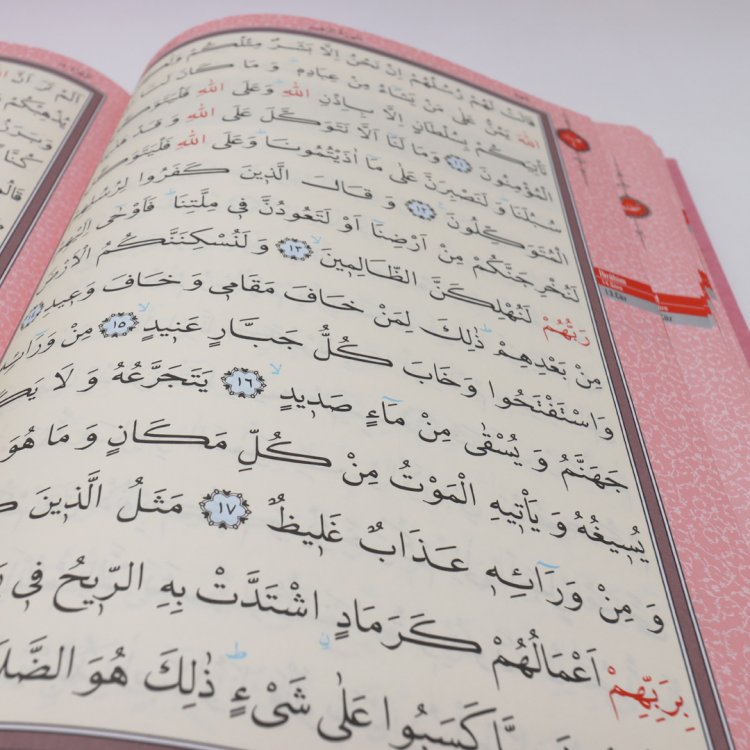 اَلَمْ تَرَ اَنَّ
يُذْهِبْكُمْ
قَالَتْ لَهُمْ رُسُلُهُمْ اِنْ نَحْنُ اِلَّا بَشَرٌ مِثْلُكُمْ
اللهَ يَمُنُّ عَلٰى مَنْ يَشَٓاءُ مِنْ عِبَادِهِ وَ مَا كَانَ لَنَٓا
نَأْتِيَكُمْ بِسُلْطَانٍ اِلَّا بِاِذْنِ اللهِ وَعَلَى اللهِ فَلْيَتَوَكَّلِ
الْمُؤْمِنُونَ ١١ وَمَا لَنَٓا اَلَّا نَتَوَكَّلَ عَلَى اللهِ وَ قَدْ
سُبُلَنَا وَ لَنَصْبِرَنَّ عَلٰى مَٓا اٰذَيْتُمُونَا وَعَلَى اللهِ فَلْيَتَوَكَّلِ
الْمُتَوَكِّلُونَ ١٢ وَ قَالَ الَّذِينَ كَفَرُوا لِرُسُلِهِمْ
لَنُخْرِجَنَّكُمْ مِنْ اَرْضِنَٓا اَوْ لَتَعُودُنَّ فِى مِلَّتِنَا فَاَوْحٰٓى اِلَيْهِمْ
رَبُّهُمْ لَنُهْلِكَنَّ الظَّالِمِينَ ١٣ وَ لَنُسْكِنَنَّكُمُ الْاَرْضَ
مِنْ بَعْدِهِمْ ذٰلِكَ لِمَنْ خَافَ مَقَامِى وَ خَافَ وَعِيدِ
وَاسْتَفْتَحُوا وَخَابَ كُلُّ جَبَّارٍ عَنِيدٍ ١٥ مِنْ وَرَٓائِهِ
جَهَنَّمُ وَ يُسْقٰى مِنْ مَٓاءٍ صَدِيدٍ ١٦ يَتَجَرَّعُهُ وَ لَا
يُسِيغُهُ وَ يَأْتِيهِ الْمَوْتُ مِنْ كُلِّ مَكَانٍ وَ مَا هُوَ
وَ مِنْ وَرَٓائِهِ عَذَابٌ غَلِيظٌ ١٧ مَثَلُ الَّذِينَ
بِرَبِّهِمْ اَعْمَالُهُمْ كَرَمَادٍ اشْتَدَّتْ بِهِ الرِّيحُ فِى
كَسَبُوا عَلٰى شَىْءٍ ذٰلِكَ هُوَ
İbrahim
13.Cüz